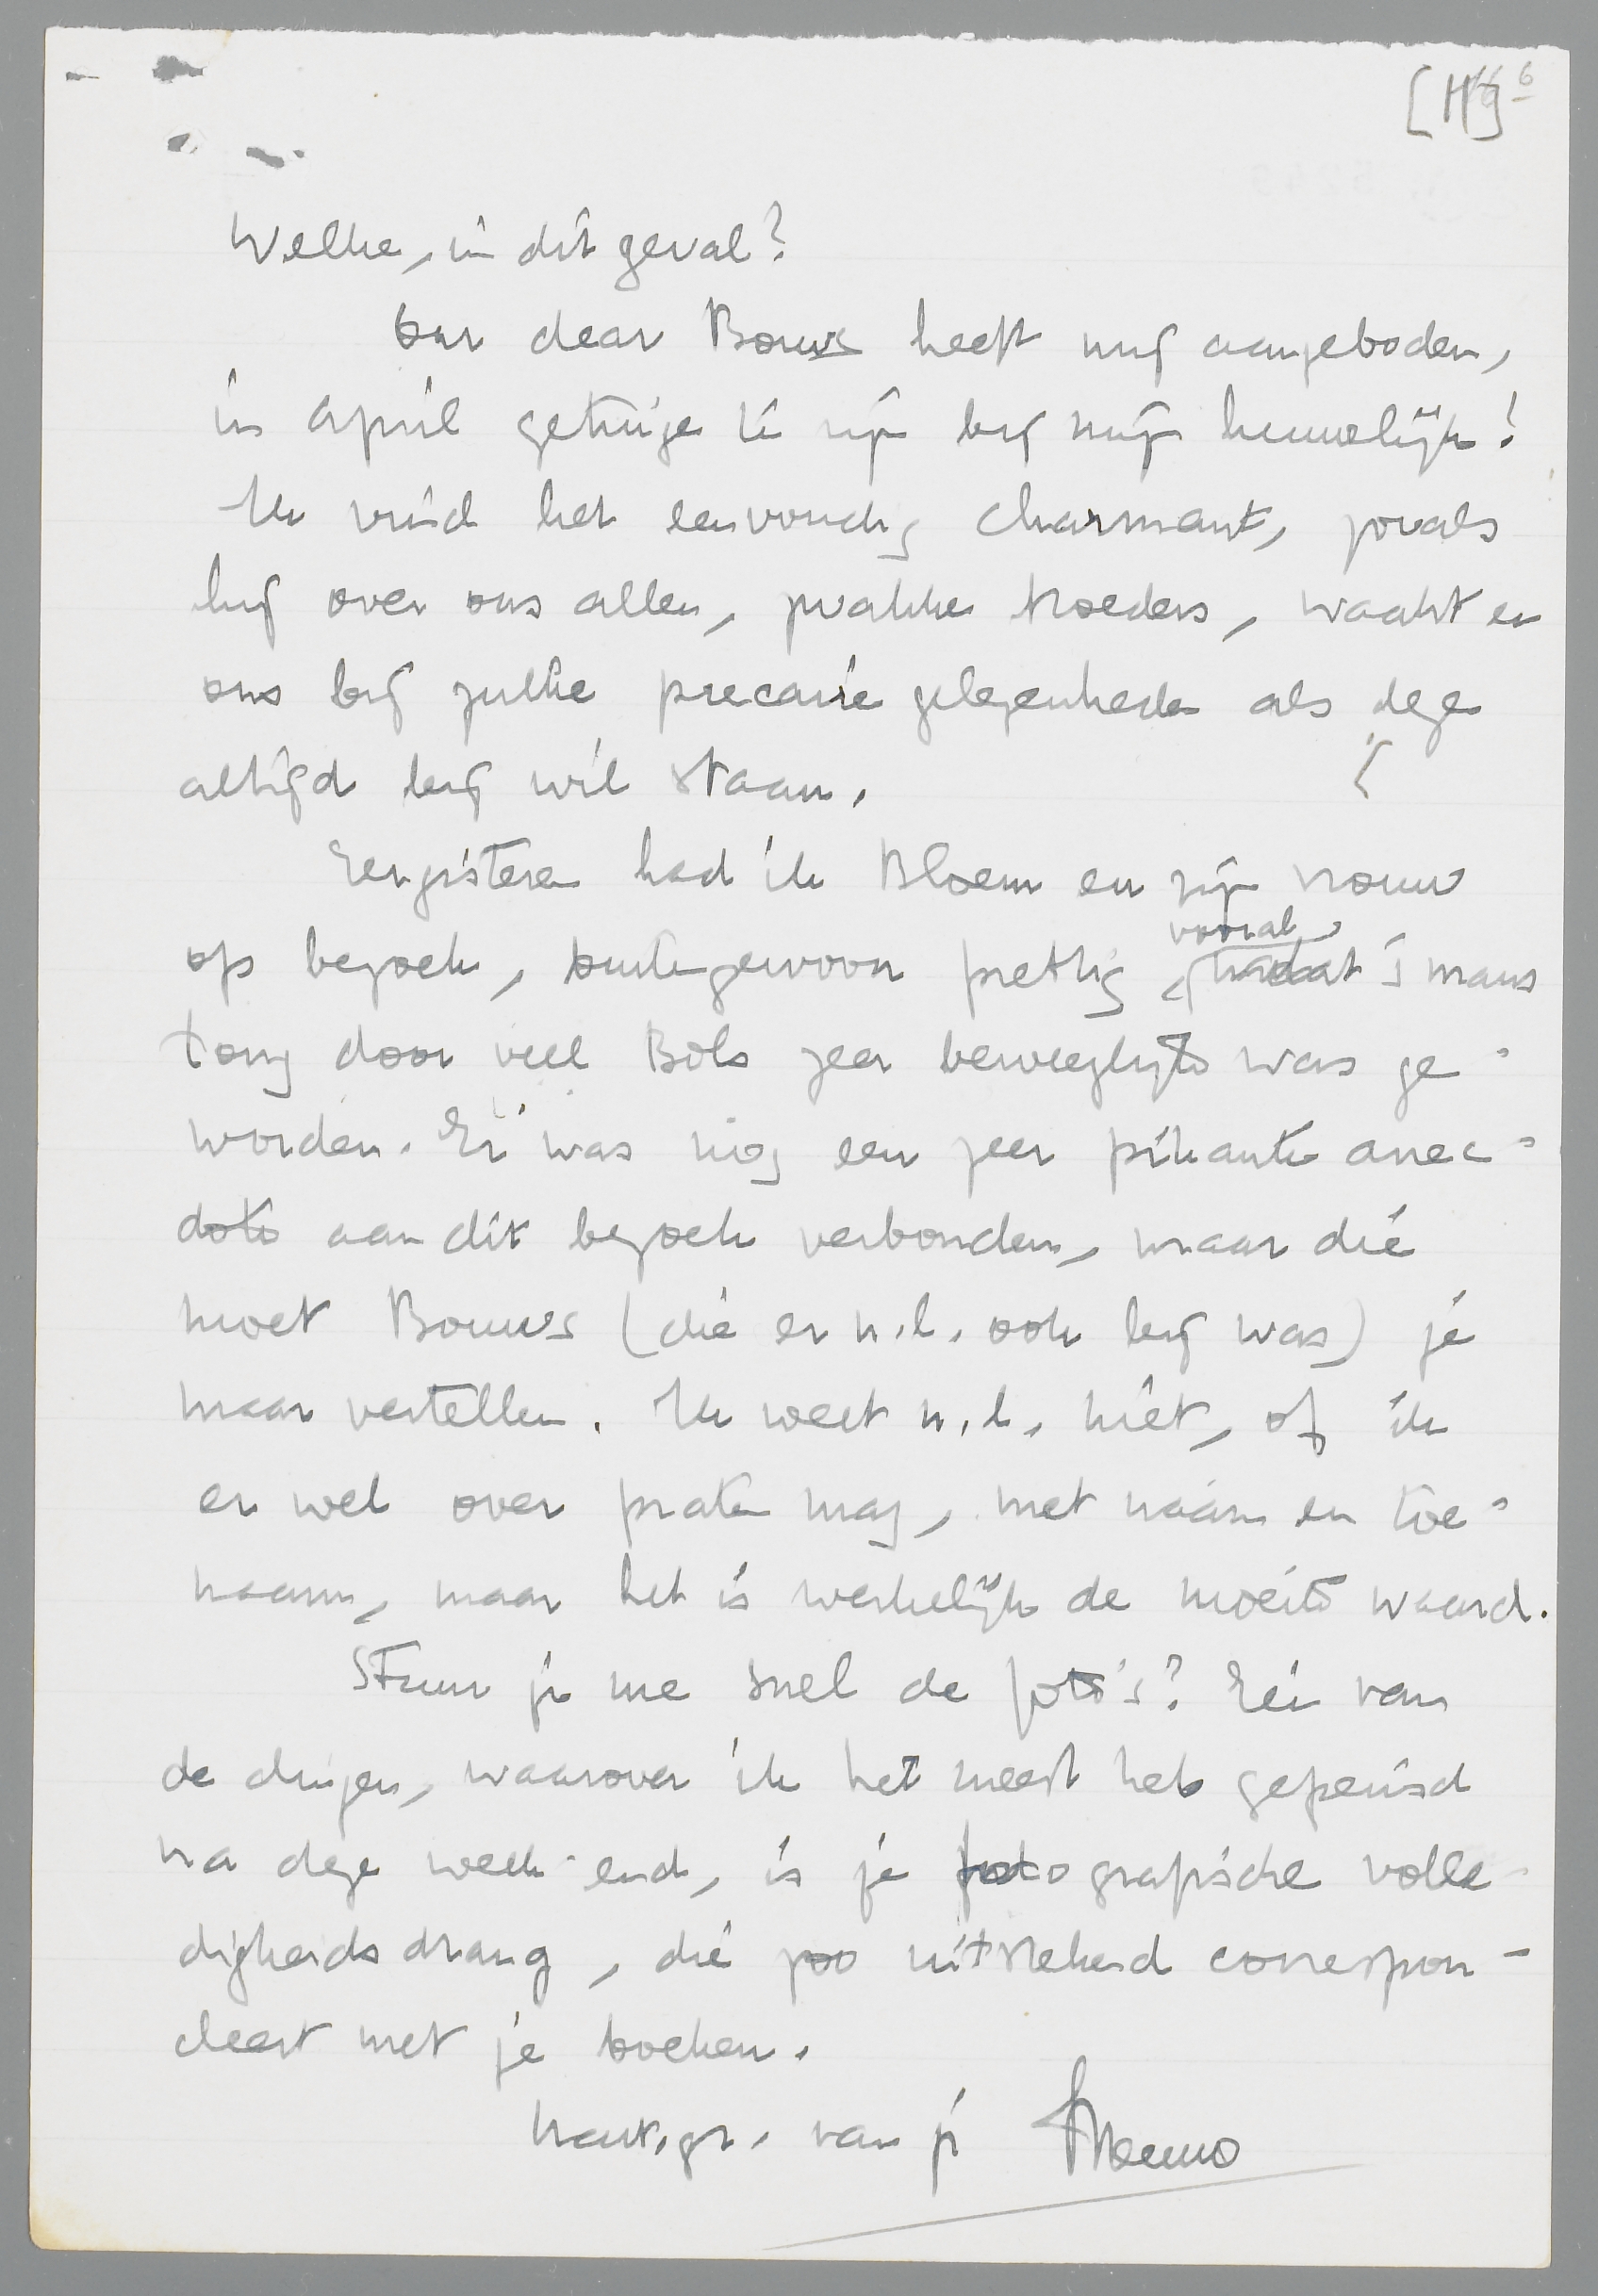 6
Welke, in dit geval?
Our dear Bouws heeft mij aangeboden,
in April getuige te zijn bij mijn huwelijk!
Ik vind het eenvoudig charmant, zooals
hij over ons allen, zwakke broeders, waakt en
ons bij zulke precaire gelegenheden als deze
altijd bij wil staan.
Eergisteren had ik Bloem en zijn vrouw
op bezoek, buitengewoon prettig,
vooral
's mans
tong door veel Bols zeer bewegelijk was ge-
worden. Er was nog een zeer pikante anec-
dote aan dit bezoek verbonden, maar die
moet Bouws (die er n.l. ook bij was) je
maar vertellen. Ik weet n.l. niet, of ik
er wel over praten mag, met naam en toe-
naam, maar het is werkelijk de moeite waard.
Stuur je me snel de foto's? Een van
de dingen, waarover ik het meest heb gepeinsd
na deze week-end, is je fotografische volle-
digheidsdrang, die zoo uitstekend correspon-
deert met je boeken.
hart. gr. van je Menno